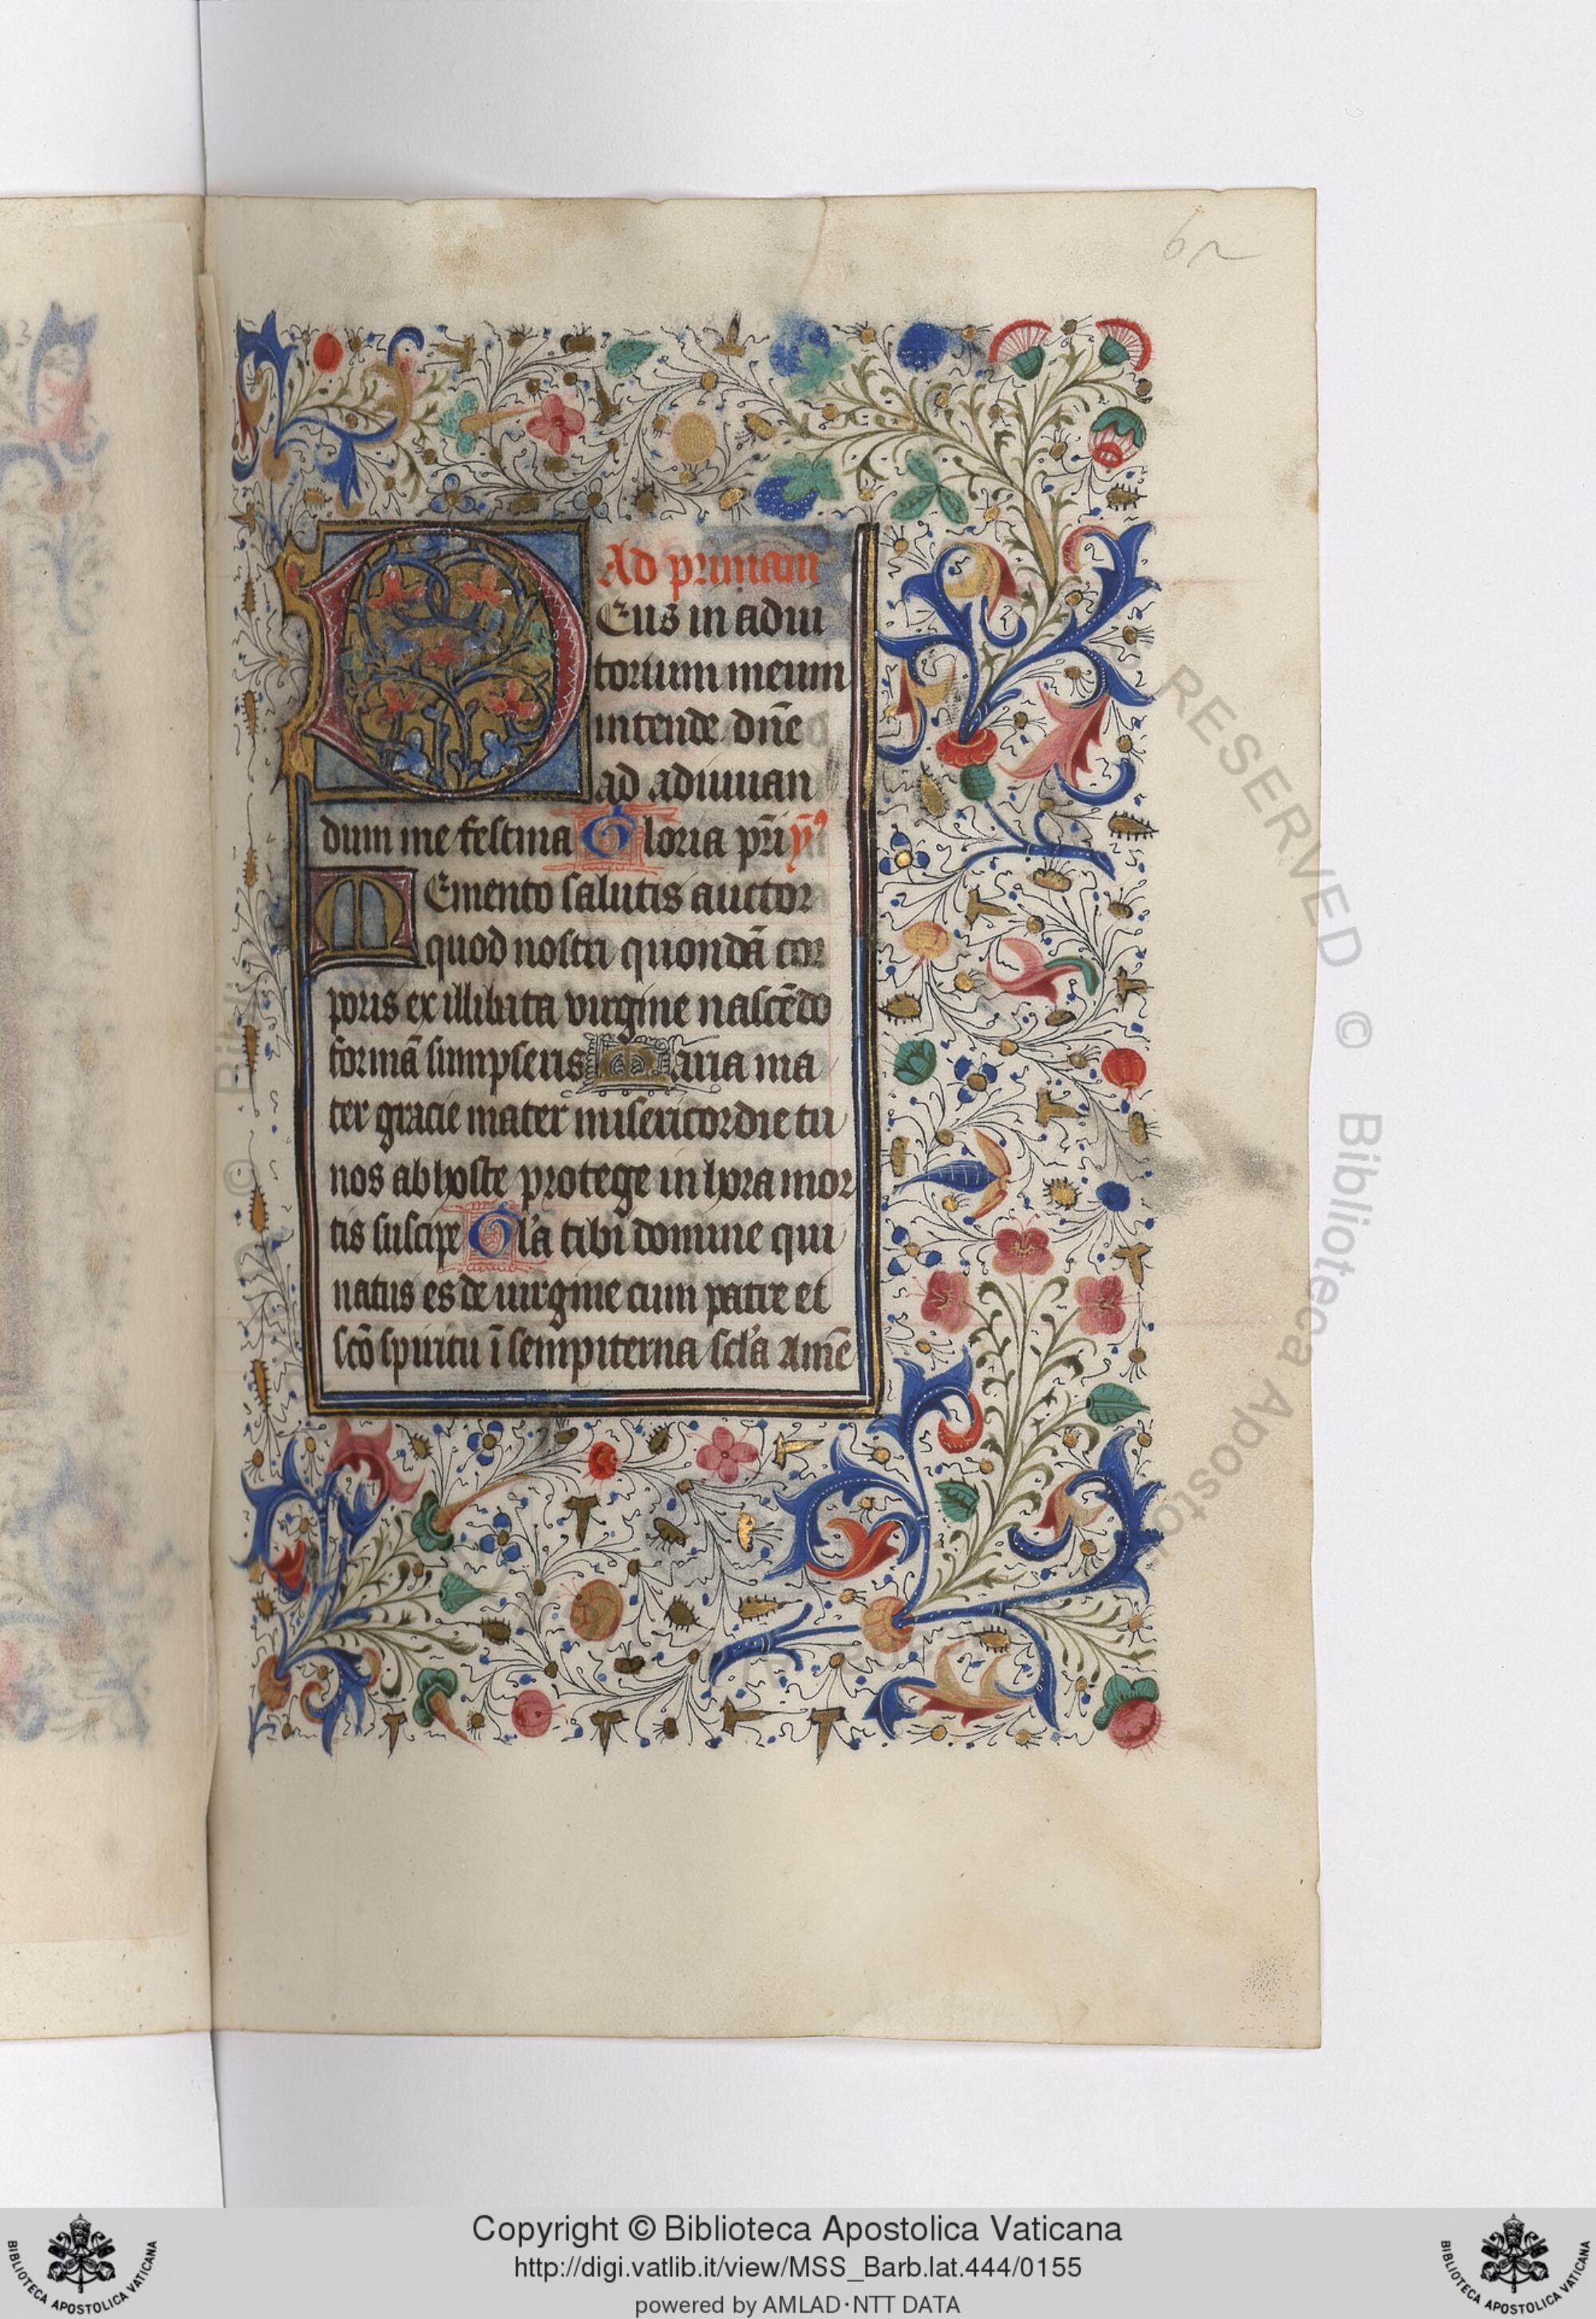 62
Ad primam
DEus in adiu
torium meum
intende dn̄e
ad adiuuan
dum me festina Gloria pr̄i ỹ⁹
MEmento salutis auctor
quod nostri quondā cor
poris ex illibata virgine nascēdo
formā sumpseris Maria ma
ter gracie mater misericordie tu
nos ab hoste protege in hora mor
tis suscipe Gl'a tibi domine qui
natus es de uirgine cum patre et
sc̄o spiritu ī sempiterna scl'a Amē
RESERVED © Biblioteca Aposto
Copyright © Biblioteca Apostolica Vaticana
http://digi.vatlib.it/view/MSS_Barb.lat.444/0155
powered by AMLAD·NTT DATA
BIBLIOTECA APOSTOLICA VATICANA
BIBLIOTECA APOSTOLICA VATICANA